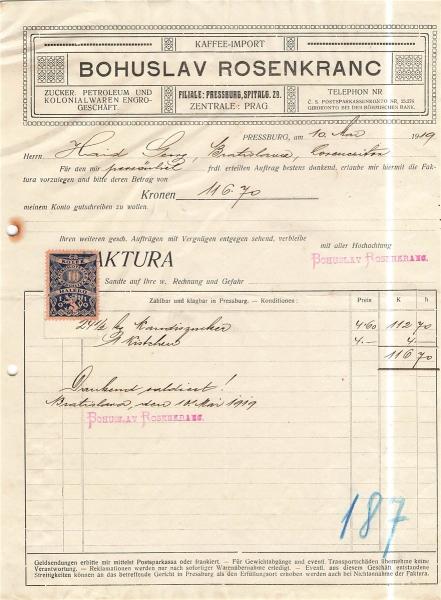 KAFFEE-IMPORT
BOHUSLAV ROSENKRANC
ZUCKER, PETROLEUM UND KOLONIALWAREN ENGRO-GESCHÄFT
FILIALE: PRESSBURG, SPITALG. 29.
ZENTRALE: PRAG
TELEPHON NR
Č. S. POSTSPARKASSENKONTO NR. 25.276
GIROKONTO BEI DER BÖHMISCHEN BANK.
PRESSBURG, am 10. Mai 1919
Herrn Haid Georg, Bratislava,
Für den mir persönlich frdl erteilten Auftrag bestens dankend, erlaube mir hiermit die Fak-
tura vorzulegen und bitte deren Betrag von
Kronen 116.70
meinem Konto gutschreiben zu wollen.
Ihren weiteren gesch. Aufträgen mit Vergnügen entgegen sehend, verbleibe
mit aller Hochachtung
BOHUSLAV ROSENKRANC.
AKTURA
Sandte auf Ihre w. Rechnung und Gefahr
Zahlbar und klagbar in Pressburg. - Konditionen: Preis K h
24½ kg Kandiszucker 4·60 112 70
1 Kistchen 4.— 4 —
116 70
Dankend saldiert!
Bratislava, den 10 Mai 1919
BOHUSLAV ROSENKRANC.
187
Geldsendungen erbitte mir mittelst Postsparkassa oder frankiert. — Für Gewichtabgänge und eventl. Transportschäden übernehme keine
Verantwortung. - Reklamationen werden nur nach sofortiger Warenübernahme erledigt. - Eventl. aus diesem Geschäft entstandene
Streitigkeiten können an das betreffende Gericht in Pressburg als den Erfüllungsort erhoben werden auch bei Nichtannahme der Faktura.